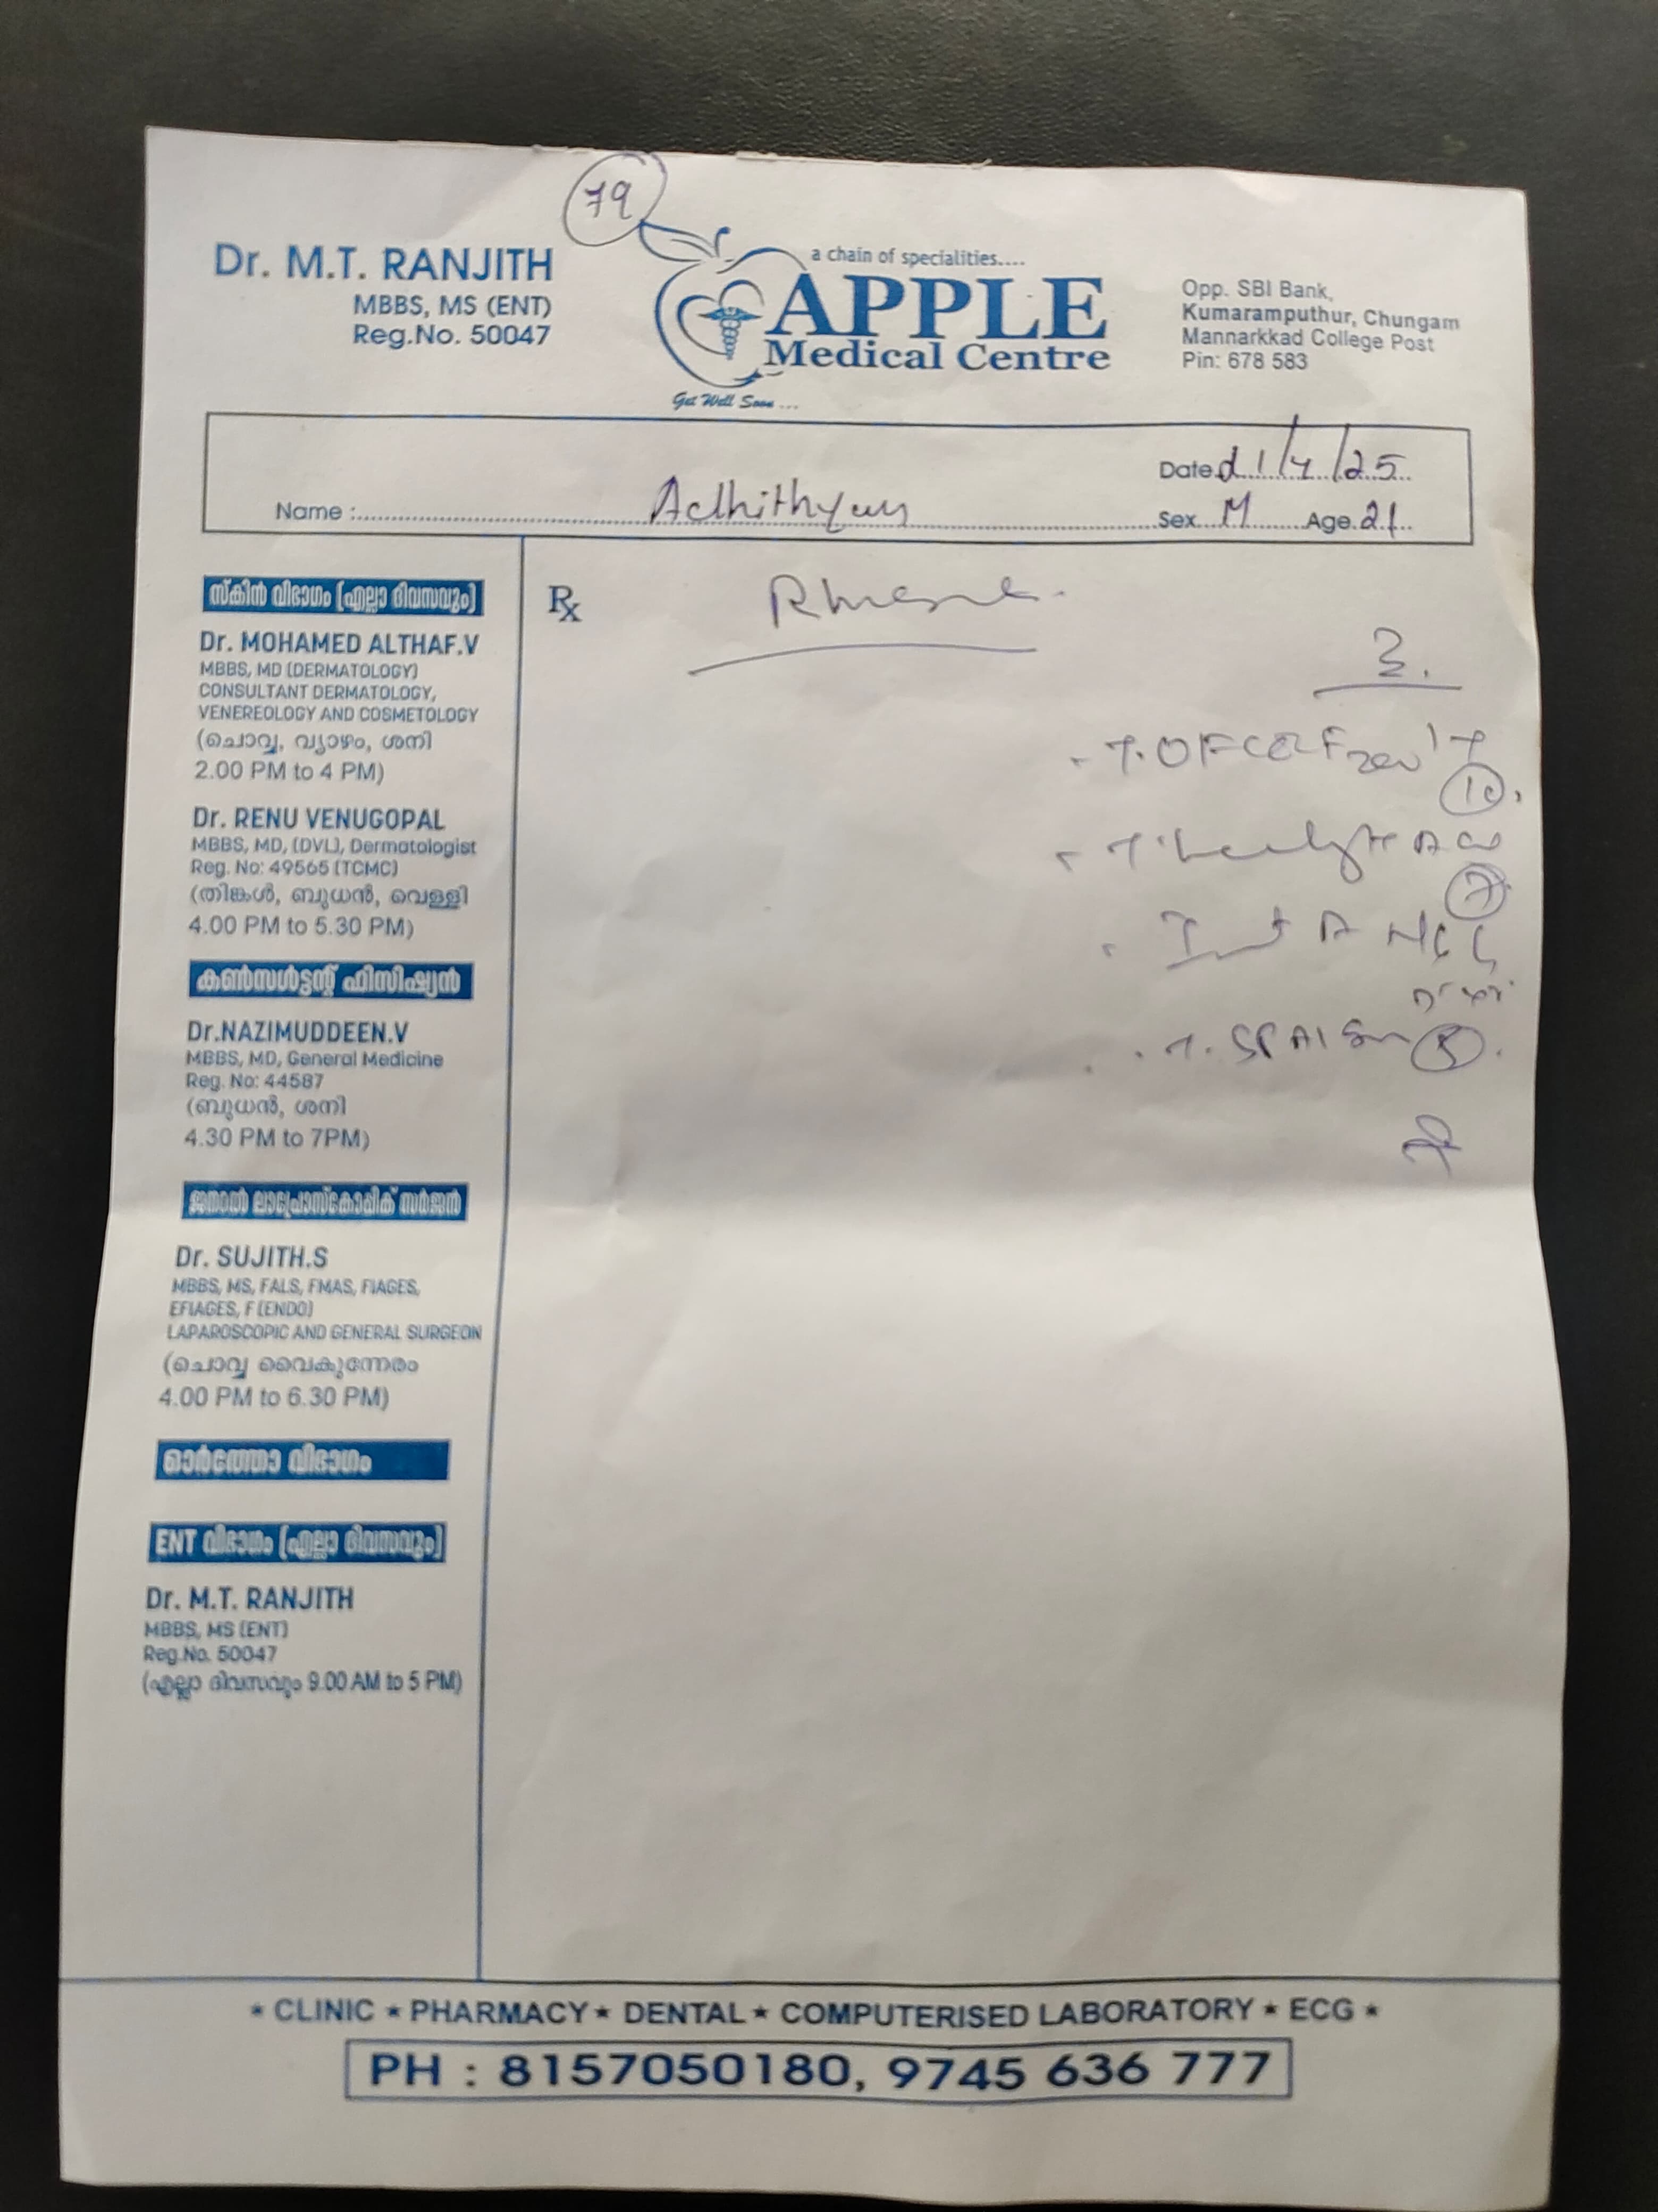 79
Dr. M.T. RANJITH
MBBS, MS (ENT)
Reg.No. 50047
a chain of specialities....
APPLE
Medical Centre
Get Well Soon ...
Opp. SBI Bank,
Kumaramputhur, Chungam
Mannarkkad College Post
Pin: 678 583
Date 21/4/25
Name : Adhithyan
Sex M Age 21
സ്കിൻ വിഭാഗം (എല്ലാ ദിവസവും)
Dr. MOHAMED ALTHAF.V
MBBS, MD (DERMATOLOGY)
CONSULTANT DERMATOLOGY,
VENEREOLOGY AND COSMETOLOGY
(ചൊവ്വ, വ്യാഴം, ശനി
2.00 PM to 4 PM)
Dr. RENU VENUGOPAL
MBBS, MD, (DVL), Dermatologist
Reg. No: 49565 (TCMC)
(തിങ്കൾ, ബുധൻ, വെള്ളി
4.00 PM to 5.30 PM)
കൺസൾട്ടന്റ് ഫിസിഷ്യൻ
Dr.NAZIMUDDEEN.V
MBBS, MD, General Medicine
Reg. No: 44587
(ബുധൻ, ശനി
4.30 PM to 7PM)
ജനറൽ ലാപ്രോസ്കോപ്പിക് സർജൻ
Dr. SUJITH.S
MBBS, MS, FALS, FMAS, FIAGES,
EFIAGES, F (ENDO)
LAPAROSCOPIC AND GENERAL SURGEON
(ചൊവ്വ വൈകുന്നേരം
4.00 PM to 6.30 PM)
ഓർത്തോ വിഭാഗം
ENT വിഭാഗം (എല്ലാ ദിവസവും)
Dr. M.T. RANJITH
MBBS, MS (ENT)
Reg.No. 50047
(എല്ലാ ദിവസവും 9.00 AM to 5 PM)
Rx
T.
10
T.
7
T.
5
★ CLINIC ★ PHARMACY ★ DENTAL ★ COMPUTERISED LABORATORY ★ ECG ★
PH : 8157050180, 9745 636 777